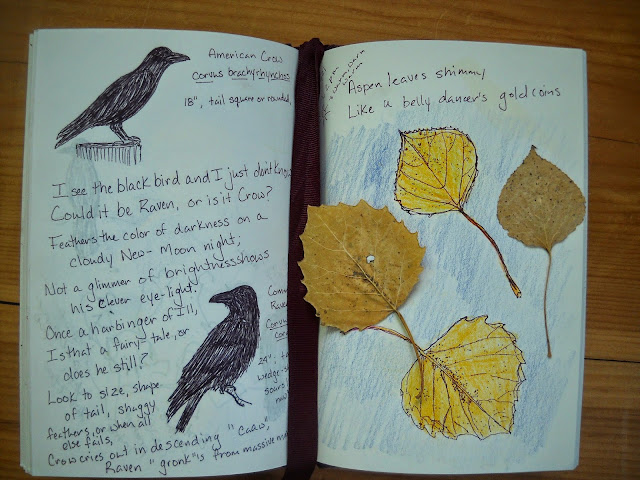 American Crow
Corvus brachyrhynchos
18", tail square or rounded,
I see the black bird and I just don't know
Could it be Raven, or is it Crow?
Feathers the color of darkness on a
cloudy New-Moon night;
Not a glimmer of brightness shows
his clever eye-light.
Once a harbinger of Ill,
Is that a fairy-tale, or
does he still?
Look to size, shape
of tail, shaggy
feathers, or when all
else fails,
Crow cries out in descending "Caaw,"
Raven "gronk"s from massive
24",
wedge-
soars
Aspen leaves shimmy
Like a belly dancer's gold coins